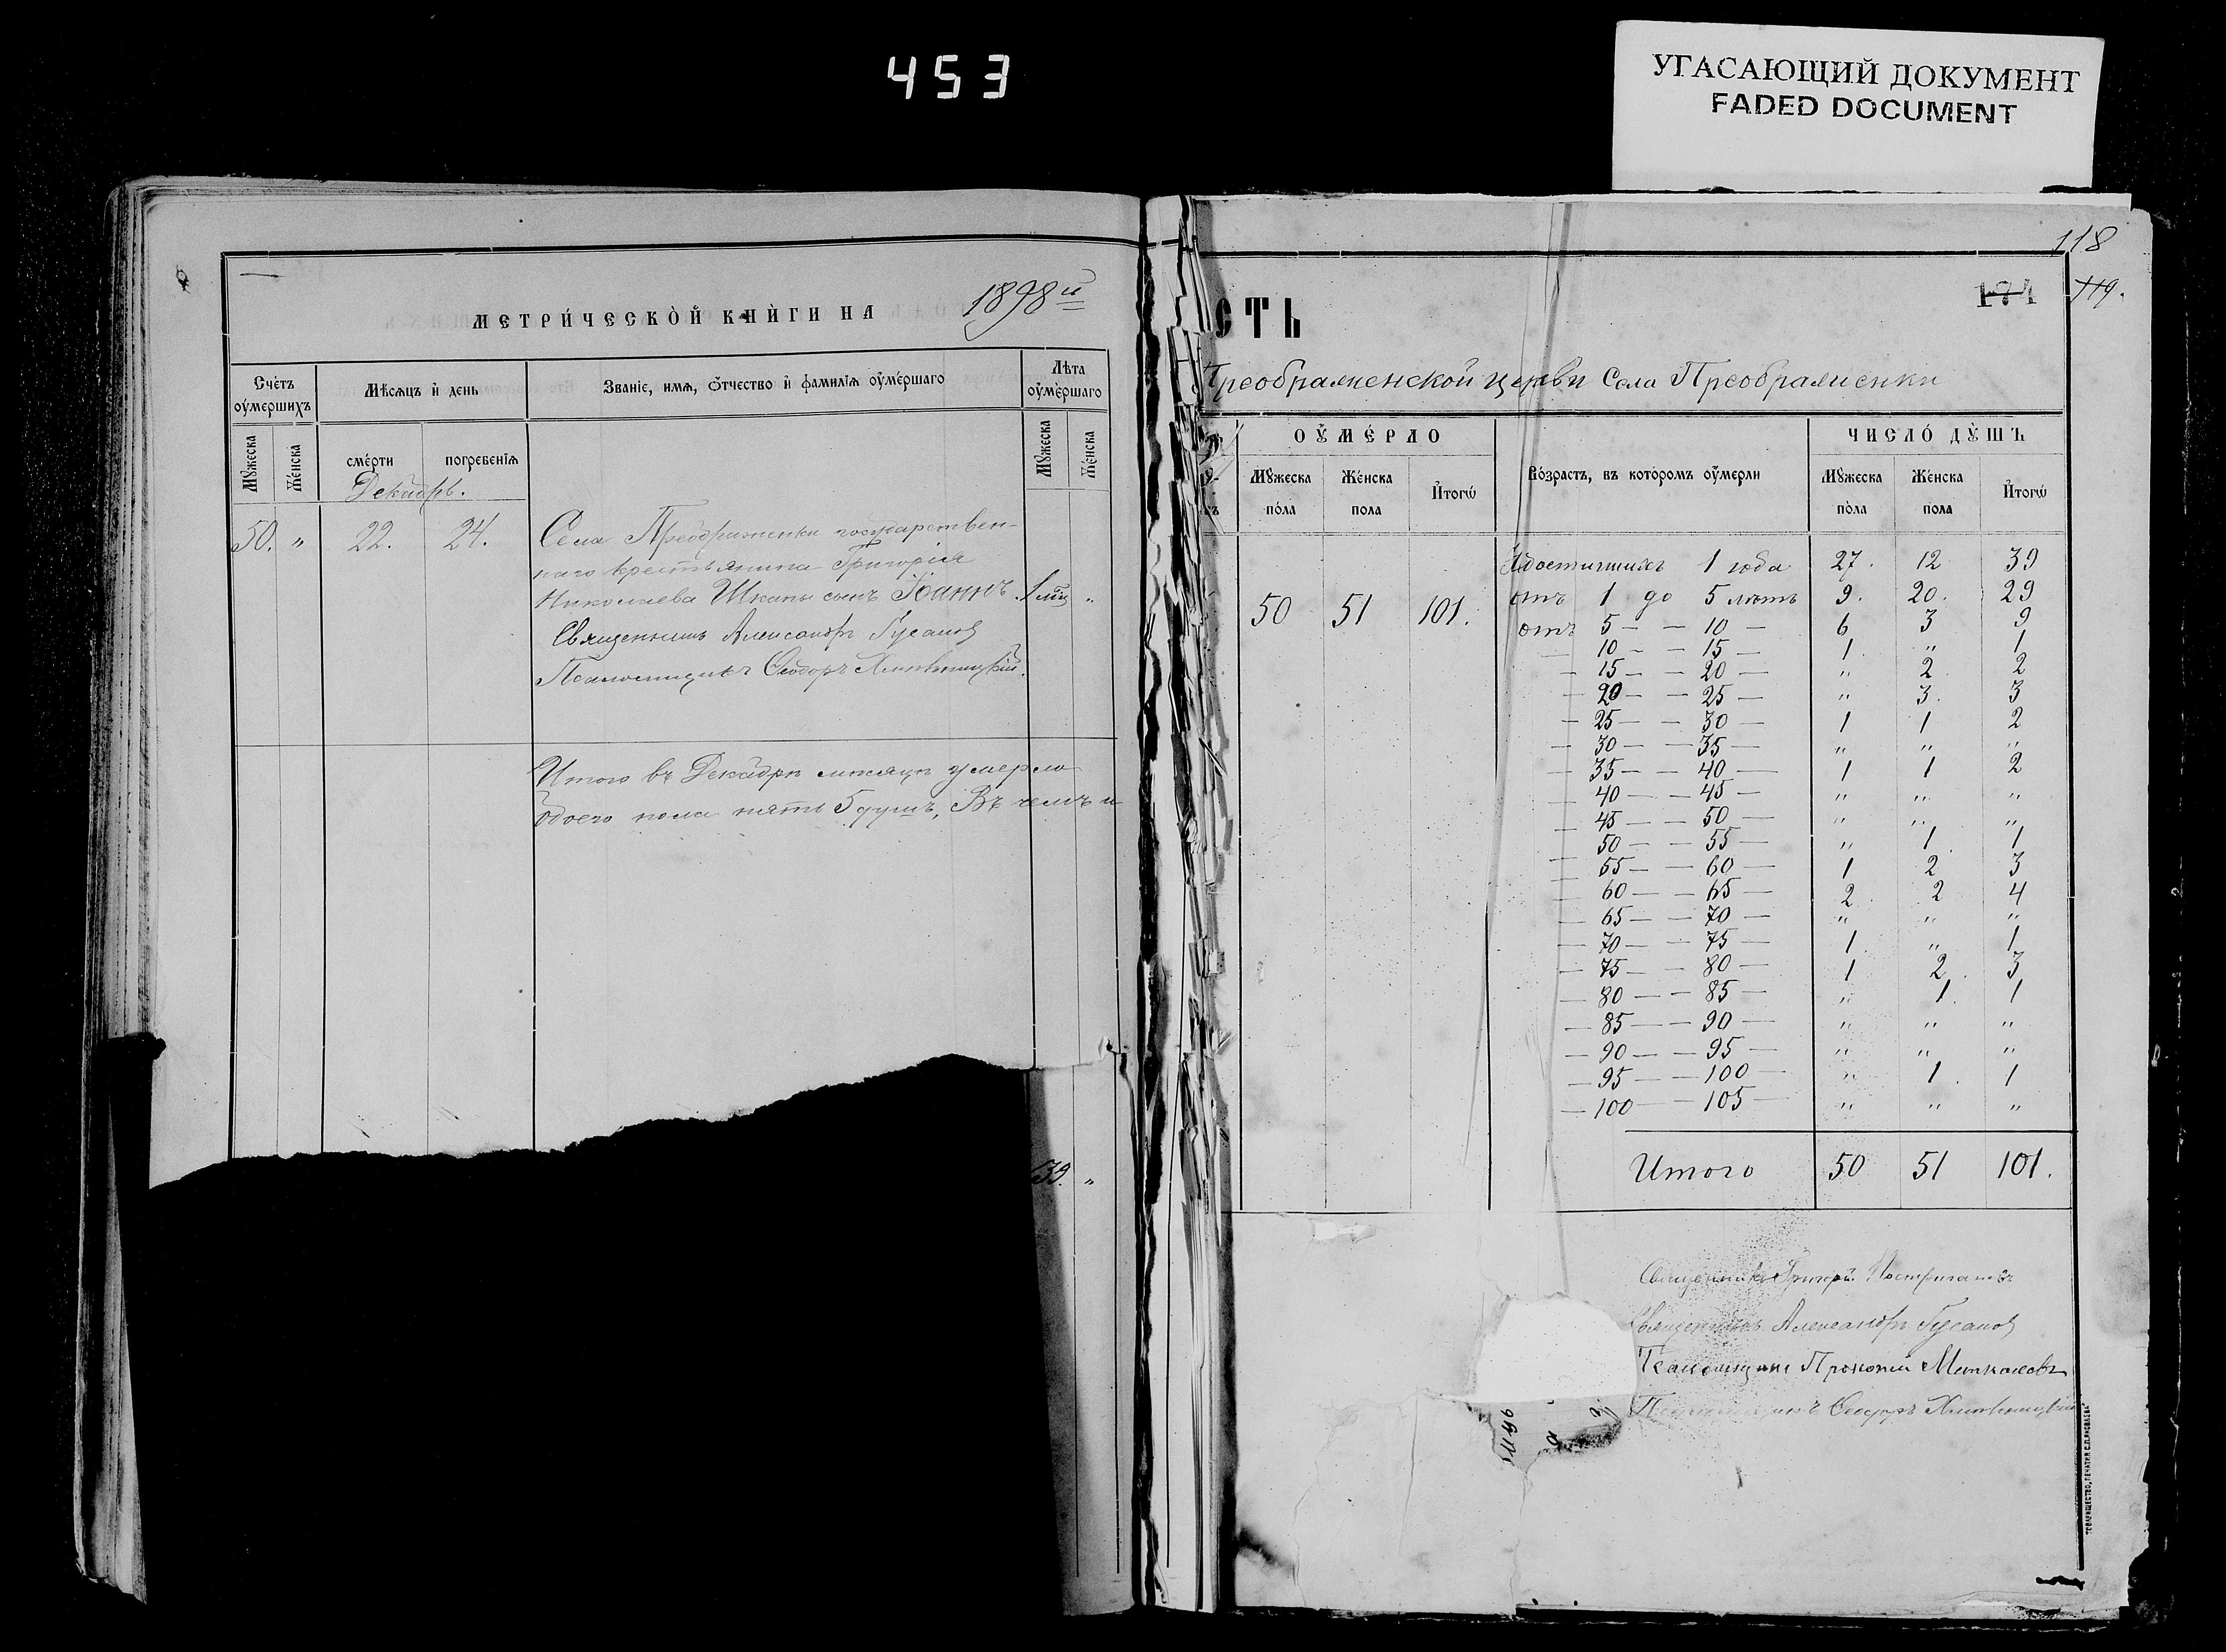 453
УГАСАЮЩИЙ ДОКУМЕНТ
FADED DOCUMENT
МЕТРИ́ЧЕСКО́Й КНИ́ГИ НА 1898й
Сче́тъ оу҆ме́ршихъ
Мѣ́сѧцъ и҆ день
Зва́нїе, и҆мѧ, ѻ҆́тчество и҆ фами́лїѧ оу҆ме́ршаго
Лѣ́та оу҆ме́ршаго
Мꙋ́жеска Же́нска сме́рти погребе́нїѧ Мꙋ́жеска Же́нска
Декабрь.
50. " 22. 24. Села Преображенки государствен-
наго крестьянина Григорія
Николаева Шкапы сынъ Іоаннъ. 1 мѣц "
Священникъ Александръ Гусаковъ
Псаломщикъ Ѳеодоръ
Итого въ Декабрѣ мѣсяцѣ умерло
обоего пола пять 5 душъ, Въ чемъ и
39. "
118
174 119.
СТЬ
Преображенской церкви Села Преображенки
ОУ҆МЕ́РЛО
Мꙋ́жеска по́ла Же́нска пола И҆того̀
Во́зрастъ, въ кото́ромъ оу҆́мерли
ЧИСЛО́ ДꙊ́ШЪ
Мꙋ́жеска по́ла Же́нска по́ла И҆того̀
50 51 101.
Недостигшихъ 1 года 27. 12 39
отъ 1 до 5 лѣтъ 9. 20. 29
отъ 5 — — 10 — 6 3 9
— 10 — — 15 — 1. " 1
— 15 — — 20 — " 2 2
— 20 — — 25 — " 3. 3
— 25 — — 30 — 1 1 2
— 30 — — 35 — " " "
— 35 — — 40 — 1 1 2
— 40 — — 45 — " " "
— 45 — — 50 — " " "
— 50 — — 55 — " 1. 1
— 55 — — 60 — 1 2 3
— 60 — — 65 — 2. 2 4
— 65 — — 70 — " " "
— 70 — — 75 — 1. " 1
— 75 — — 80 — 1 2. 3
— 80 — — 85 — " 1. 1
— 85 — — 90 — " " "
— 90 — — 95 — " " "
— 95 — — 100 — " 1. 1
— 100 — — 105 — " " "
Итого 50 51 101.
Священникъ Григорій
Священникъ Александръ Гусаковъ
Псаломщикъ Прокопій
Псаломщикъ Ѳеодоръ